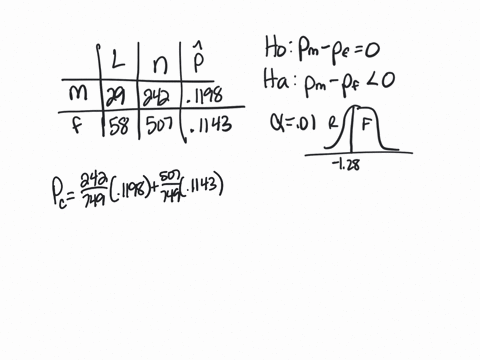 L n p̂
m 29 242 .1198
f 58 507 .1143
Ho: Pm-Pf=0
Ha: Pm-Pf<0
α=.01 R F
-1.28
Pc=242/749(.1198)+507/749(.1143)